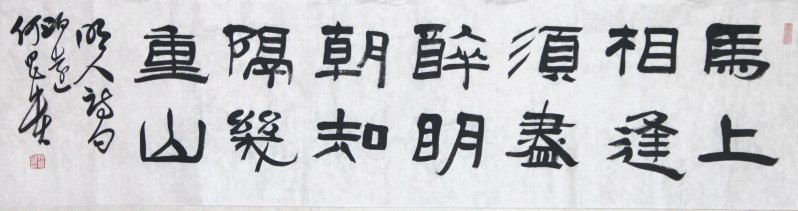 馬上
相逢
須盡
醉明
朝知
隔幾
重山
明人詩句